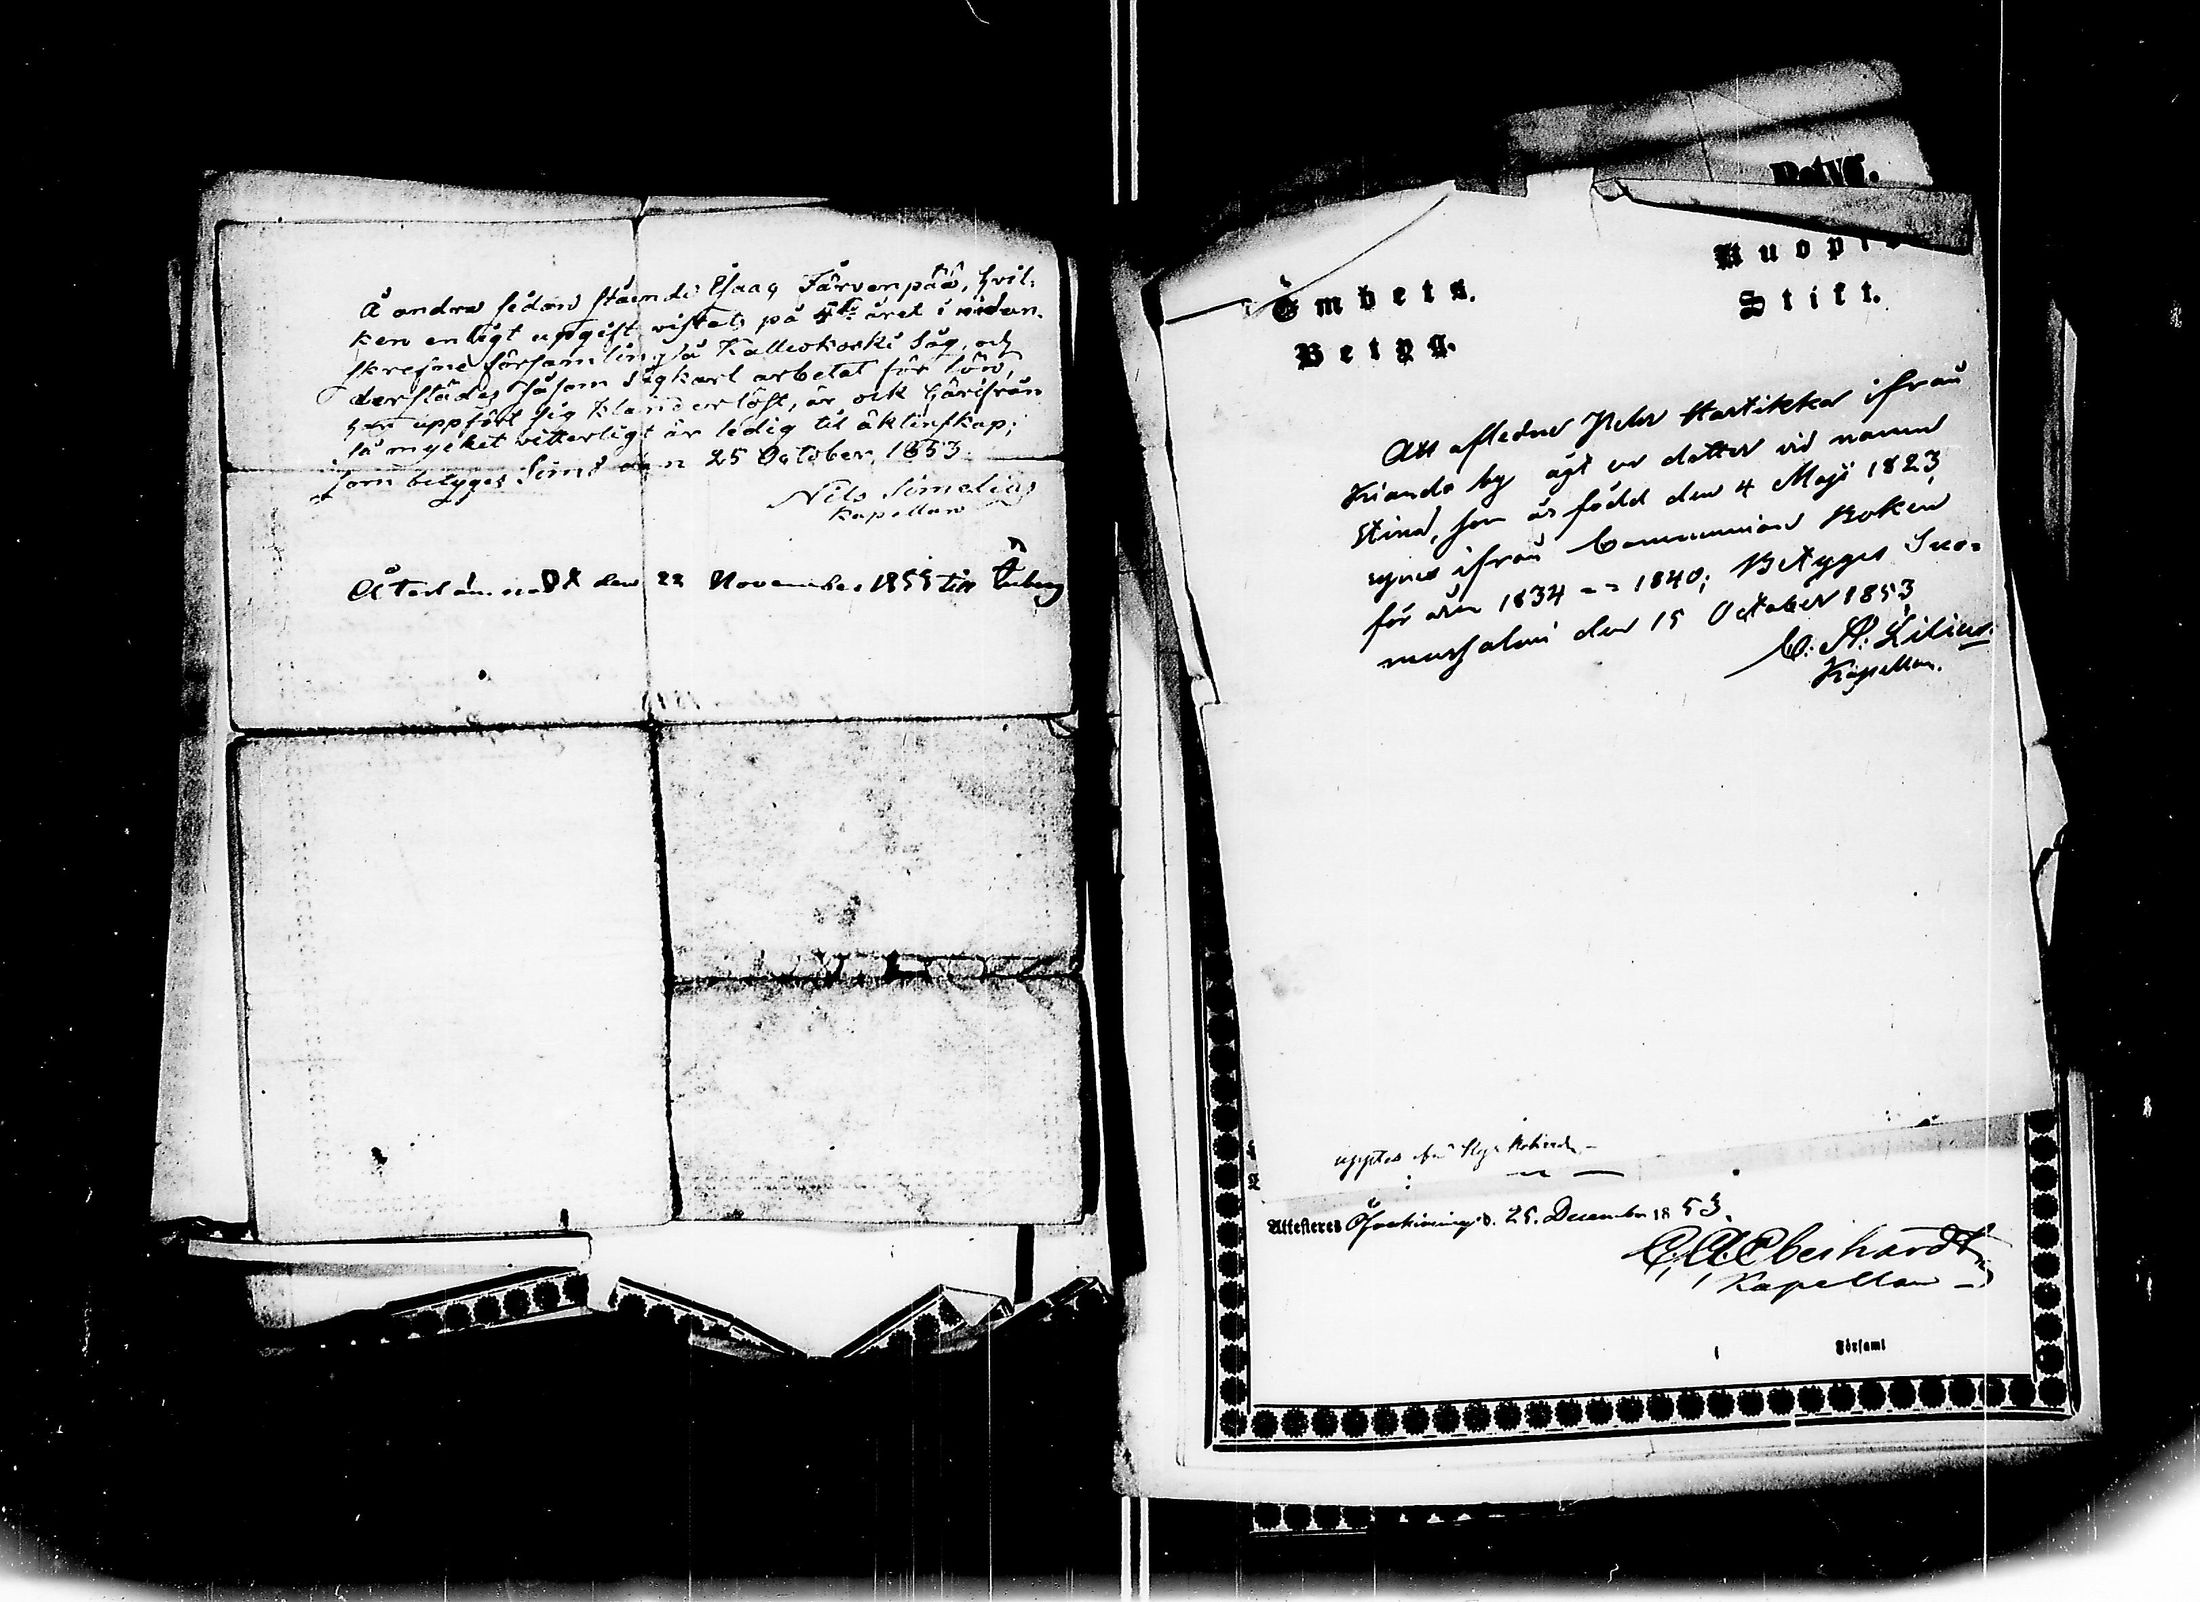 Å andra sidan stående Isaac Järvenpää, hvil-
ken enligt uppgift vistats på 4de året i
församling å Kalliokoski Såg, och
derstädes såsom Sågkarl arbetat för lön,
har uppfört sig klanderlöst, är ock härifrån
så mycket witterligt är ledig til äktenskap;
som betygas Simo den 25 October 1853.
Nils Simelius
Kapellan
Återlämnadt den 22 November 1855 till
Betyg.
Kuopio
Stift.
Embets-
Betyg.
Att aflidne Petr Hartikka ifrån
Kianda by ägt en dotter vid namn
Stina, som är född den 4 Maji 1823,
synes ifrån Communion Boken
för åren 1834 -- 1840; Betygas Suo-
mussalmi den 15 October 1853
C. A. Zilius.
Kapellan.
Attesteres d. 25. December 1853.
C. A. Eberhardt
Kapellan
Församl